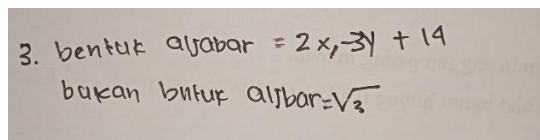 3. bentuk aljabar = 2x,-3y + 14
bukan bntuk aljbar=√3